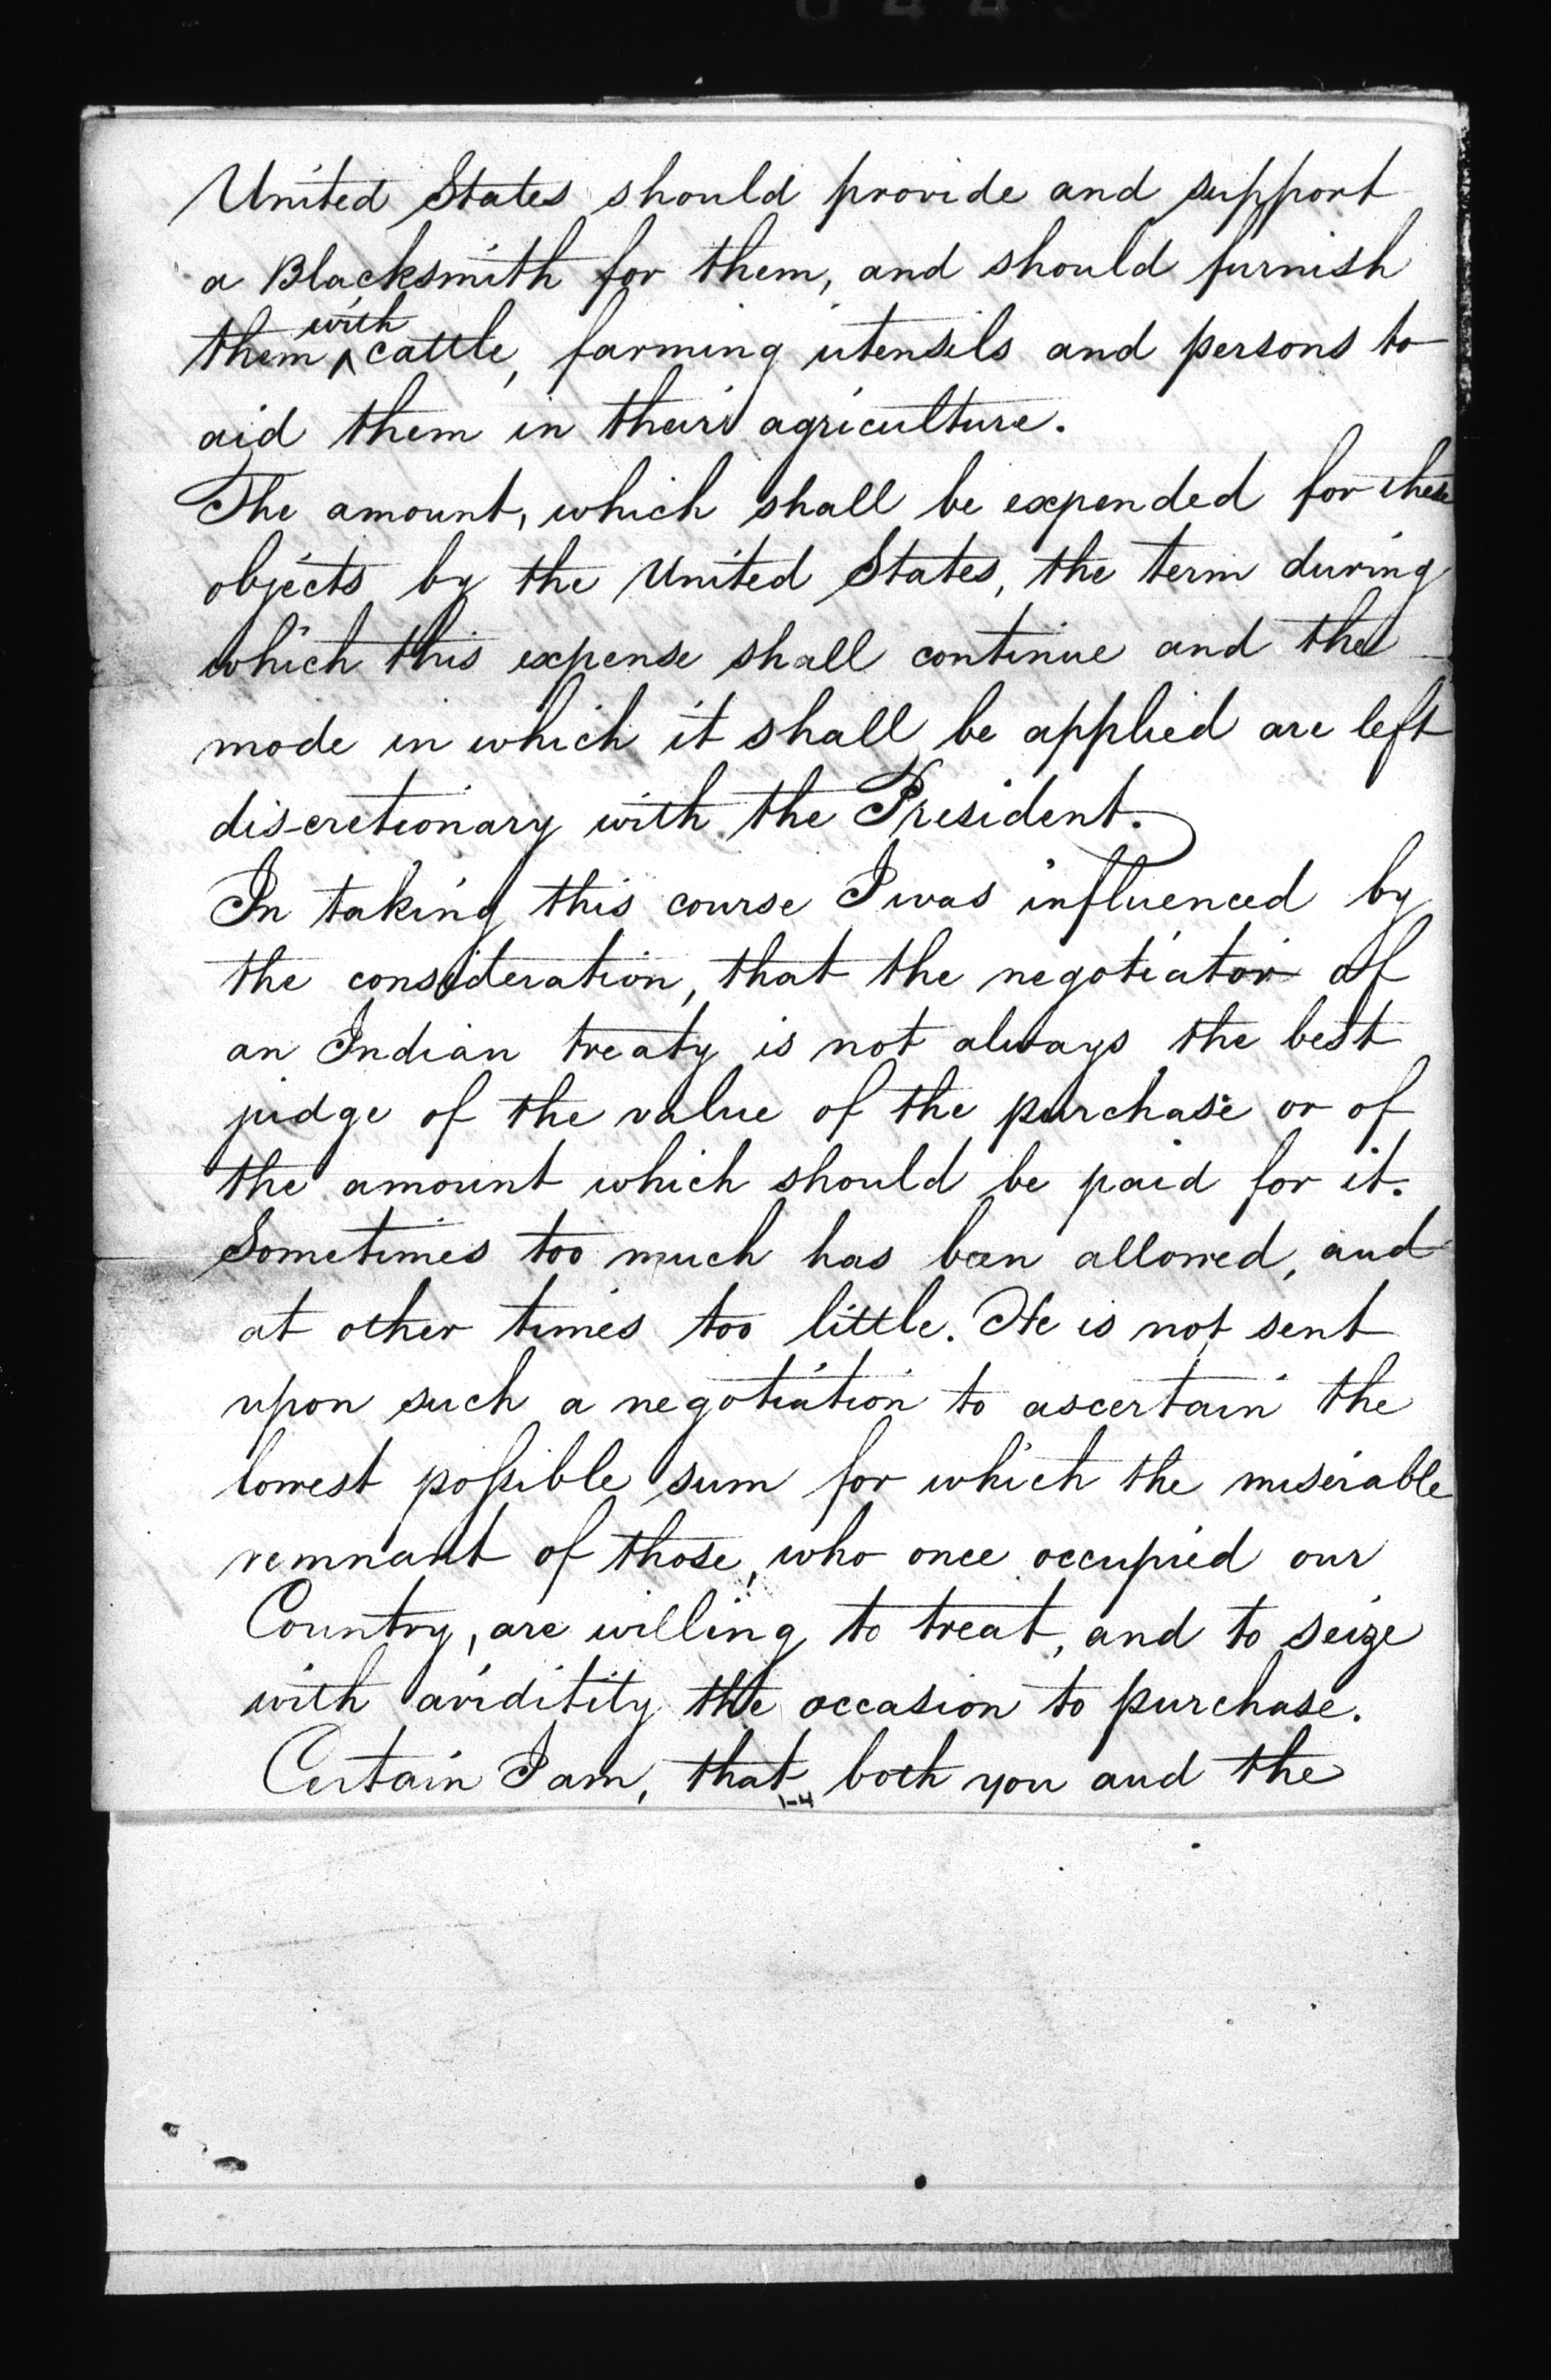 United States should provide and support
a Blacksmith for them, and should furnish
with
them ^ cattle, farming utensils and persons to
aid them in their agriculture.
The amount, which shall be expended for these
objects by the United States, the term during
which this expense shall continue and the
mode in which it shall be applied are left
discretionary with the President.
In taking this course I was influenced by
the consideration, that the negotiator of
an Indian treaty is not always the best
judge of the value of the purchase or of
the amount which should be paid for it.
Sometimes too much has been allowed, and
at other times too little. He is not sent
upon such a negotiation to ascertain the
lowest possible sum for which the miserable
remnant of those, who once occupied our
Country, are willing to treat, and to seize
with aviditity the occasion to purchase.
Certain I am, that both you and the
1-4